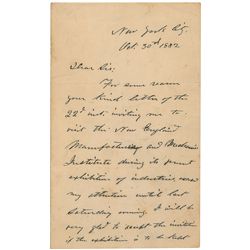 New York City,
Oct. 30th 1882
Dear Sir:
For some reason
your kind letter of the
22d inst. inviting me to
visit the New England
Manufacturers and Mechanics
Institute during its present
exhibition of industries,
my attention until last
Saturday evening. I will be
very glad to accept the invitation
if the exhibition is to be kept